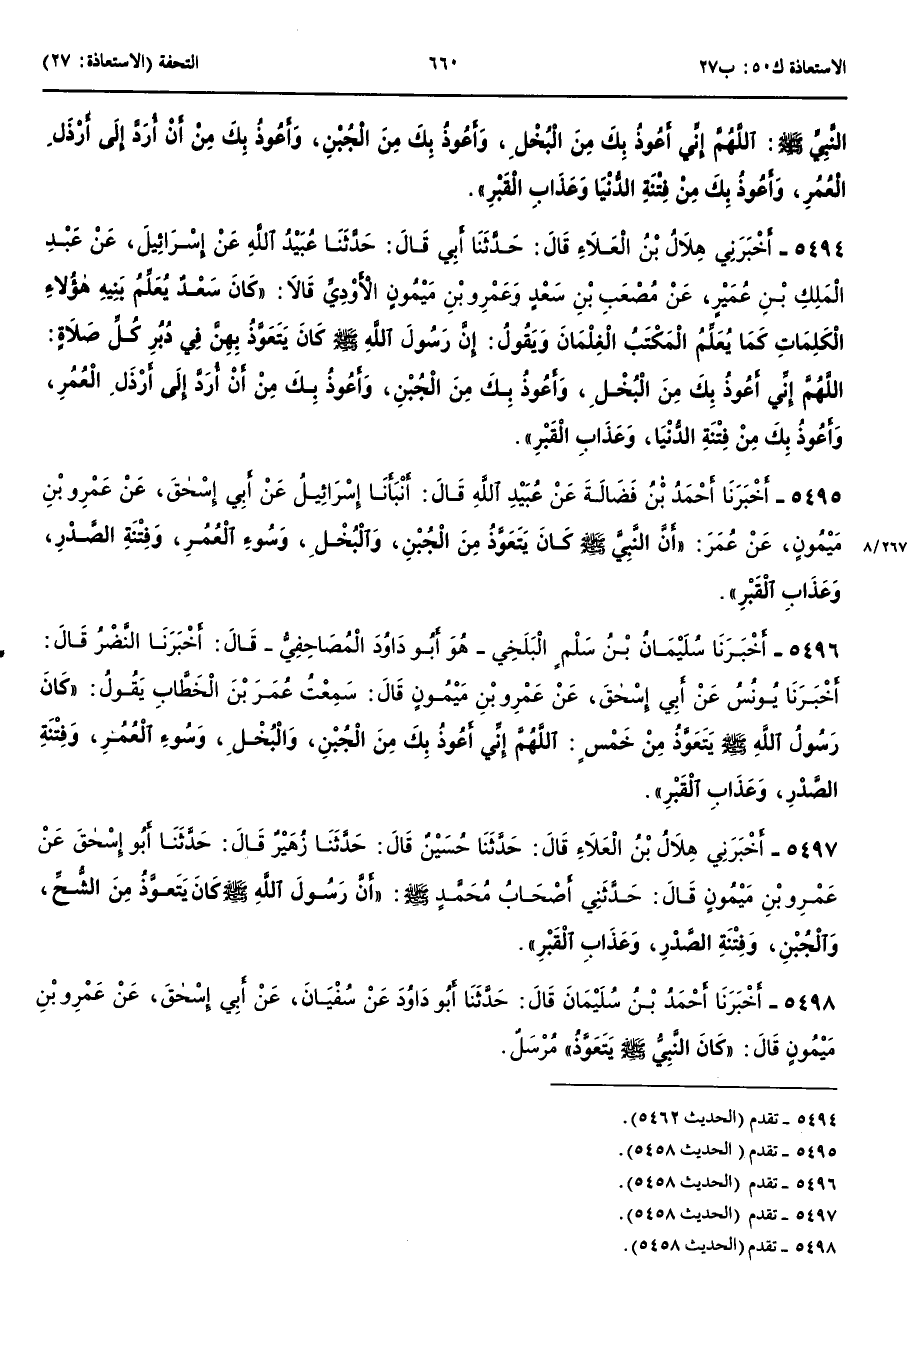 الاستعاذة ك٥٠: ب٢٧ ٦٦٠ التحفة (الاستعاذة: ٢٧)
النَّبِيُّ ﷺ: اَللَّهُمَّ إِنِّي أَعُوذُ بِكَ مِنَ الْبُخْلِ، وَأَعُوذُ بِكَ مِنَ الْجُبْنِ، وَأَعُوذُ بِكَ مِنْ أَنْ أُرَدَّ إِلَى أَرْذَلِ
الْعُمُرِ، وَأَعُوذُ بِكَ مِنْ فِتْنَةِ الدُّنْيَا وَعَذَابِ الْقَبْرِ».
٥٤٩٤ - أَخْبَرَنِي هِلَالُ بْنُ الْعَلَاءِ قَالَ: حَدَّثَنَا أَبِي قَالَ: حَدَّثَنَا عُبَيْدُ اللَّهِ عَنْ إِسْرَائِيلَ، عَنْ عَبْدِ
الْمَلِكِ بْنِ عُمَيْرٍ، عَنْ مُصْعَبِ بْنِ سَعْدٍ وَعَمْرِو بْنِ مَيْمُونٍ الْأَوْدِيِّ قَالَا: «كَانَ سَعْدٌ يُعَلِّمُ بَنِيهِ هٰؤُلَاءِ
الْكَلِمَاتِ كَمَا يُعَلِّمُ الْمَكْتَبُ الْغِلْمَانَ وَيَقُولُ: إِنَّ رَسُولَ اللَّهِ ﷺ كَانَ يَتَعَوَّذُ بِهِنَّ فِي دُبُرِ كُلِّ صَلَاةٍ:
اللَّهُمَّ إِنِّي أَعُوذُ بِكَ مِنَ الْبُخْلِ، وَأَعُوذُ بِكَ مِنَ الْجُبْنِ، وَأَعُوذُ بِكَ مِنْ أَنْ أُرَدَّ إِلَى أَرْذَلِ الْعُمُرِ،
وَأَعُوذُ بِكَ مِنْ فِتْنَةِ الدُّنْيَا، وَعَذَابِ الْقَبْرِ».
٥٤٩٥ - أَخْبَرَنَا أَحْمَدُ بْنُ فَضَالَةَ عَنْ عُبَيْدِ اللَّهِ قَالَ: أَنْبَأَنَا إِسْرَائِيلُ عَنْ أَبِي إِسْحٰقَ، عَنْ عَمْرِو بْنِ
مَيْمُونٍ، عَنْ عُمَرَ: «أَنَّ النَّبِيَّ ﷺ كَانَ يَتَعَوَّذُ مِنَ الْجُبْنِ، وَالْبُخْلِ، وَسُوءِ الْعُمُرِ، وَفِتْنَةِ الصَّدْرِ،
٨/٢٦٧
وَعَذَابِ الْقَبْرِ».
٥٤٩٦ - أَخْبَرَنَا سُلَيْمَانُ بْنُ سَلْمٍ الْبَلَخِي - هُوَ أَبُو دَاوُدَ الْمُصَاحِفِيُّ - قَالَ: أَخْبَرَنَا النَّضْرُ قَالَ:
أَخْبَرَنَا يُونُسُ عَنْ أَبِي إِسْحٰقَ، عَنْ عَمْرِو بْنِ مَيْمُونٍ قَالَ: سَمِعْتُ عُمَرَ بْنَ الْخَطَّابِ يَقُولُ: «كَانَ
رَسُولُ اللَّهِ ﷺ يَتَعَوَّذُ مِنْ خَمْسٍ: اَللَّهُمَّ إِنِّي أَعُوذُ بِكَ مِنَ الْجُبْنِ، وَالْبُخْلِ، وَسُوءِ الْعُمُرِ، وَفِتْنَةِ
الصَّدْرِ، وَعَذَابِ الْقَبْرِ».
٥٤٩٧ - أَخْبَرَنِي هِلَالُ بْنُ الْعَلَاءِ قَالَ: حَدَّثَنَا حُسَيْنٌ قَالَ: حَدَّثَنَا زُهَيْرٌ قَالَ: حَدَّثَنَا أَبُو إِسْحٰقَ عَنْ
عَمْرِو بْنِ مَيْمُونٍ قَالَ: حَدَّثَنِي أَصْحَابُ مُحَمَّدٍ ﷺ: «أَنَّ رَسُولَ اللَّهِ ﷺ كَانَ يَتَعوَّذُ مِنَ الشُّحِّ،
وَالْجُبْنِ، وَفِتْنَةِ الصَّدْرِ، وَعَذَابِ الْقَبْرِ».
٥٤٩٨ - أَخْبَرَنَا أَحْمَدُ بْنُ سُلَيْمَانَ قَالَ: حَدَّثَنَا أَبُو دَاوُدَ عَنْ سُفْيَانَ، عَنْ أَبِي إِسْحٰقَ، عَنْ عَمْرِو بْنِ
مَيْمُونٍ قَالَ: «كَانَ النَّبِيُّ ﷺ يَتَعَوَّذُ» مُرْسَلٌ.
٥٤٩٤ - تقدم (الحديث ٥٤٦٢).
٥٤٩٥ - تقدم ( الحديث ٥٤٥٨).
٥٤٩٦ - تقدم (الحديث ٥٤٥٨).
٥٤٩٧ - تقدم (الحديث ٥٤٥٨).
٥٤٩٨ - تقدم (الحديث ٥٤٥٨).